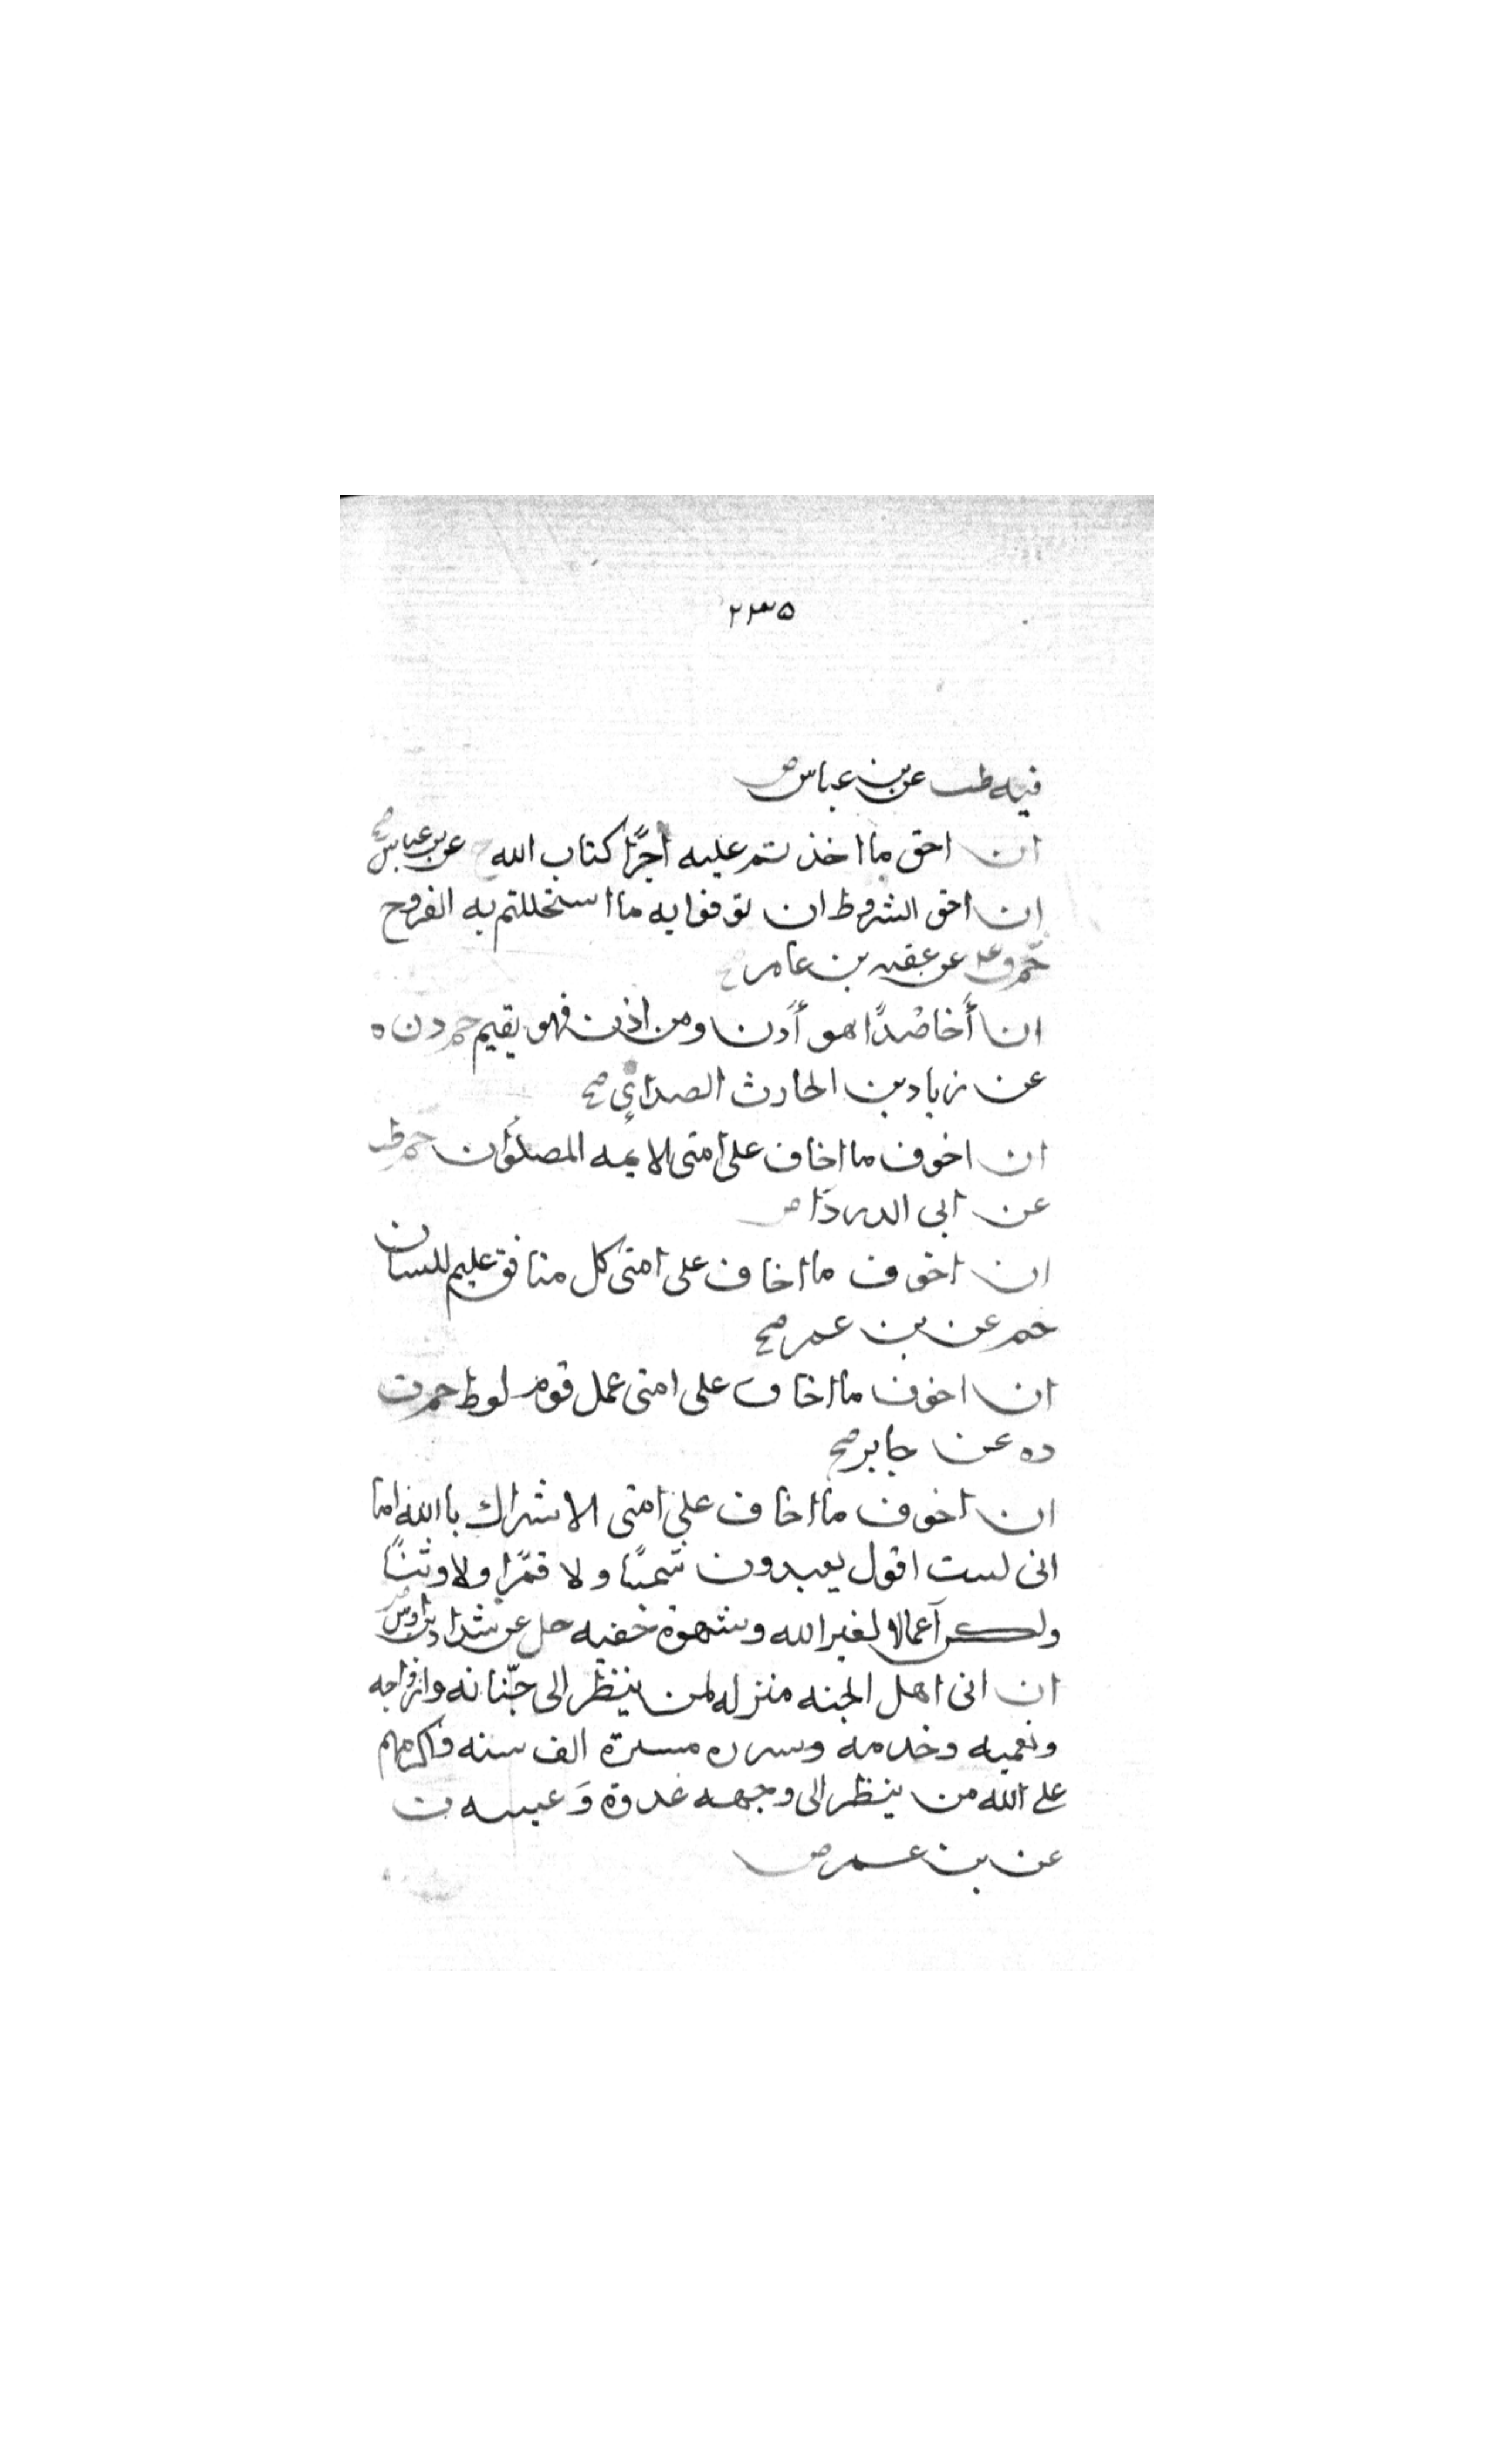 ٢٣٥
فيه طب عن بن عباس ض
ان احق ما اخذتم عليه اجرًا كتاب الله خ عن بن عباس صح
ان احق الشروط ان توفوا به ما استحللتم به الفروج
حم ق عن عقبه بن عامر صح
ان أخا صُدًا هو أذن ومن اذن فهو يقيم حم د ن ه
عن زياد بن الحارث الصداءي صح
ان اخوف ما اخاف على امتى الايمه المضلون حم طب
عن ابى الدردآ ض
ان اخوف ما اخاف على امتى كل منافق عليم اللسان
حم عن بن عمر صح
ان اخوف ما اخاف على امتى عمل قوم لوط حم ت
ه عن جابر صح
ان اخوف ما اخاف على امتى الاشراك باالله اما
انى لست اقول يعبدون شمسًا ولا قمرًا ولا وثنًا
ولكن أعمالا لغير الله وشهوة خفيه حل عن شداد بن اوس
ان ادنى اهل الجنه منزله لمن ينظر الى جنّانه وازواجه
ونعميه وخدمه وسرره مسيرة الف سنه واكرمهم
على الله من ينظر الى وجهه غدوة وَعيسه ت
عن بن عمر ض